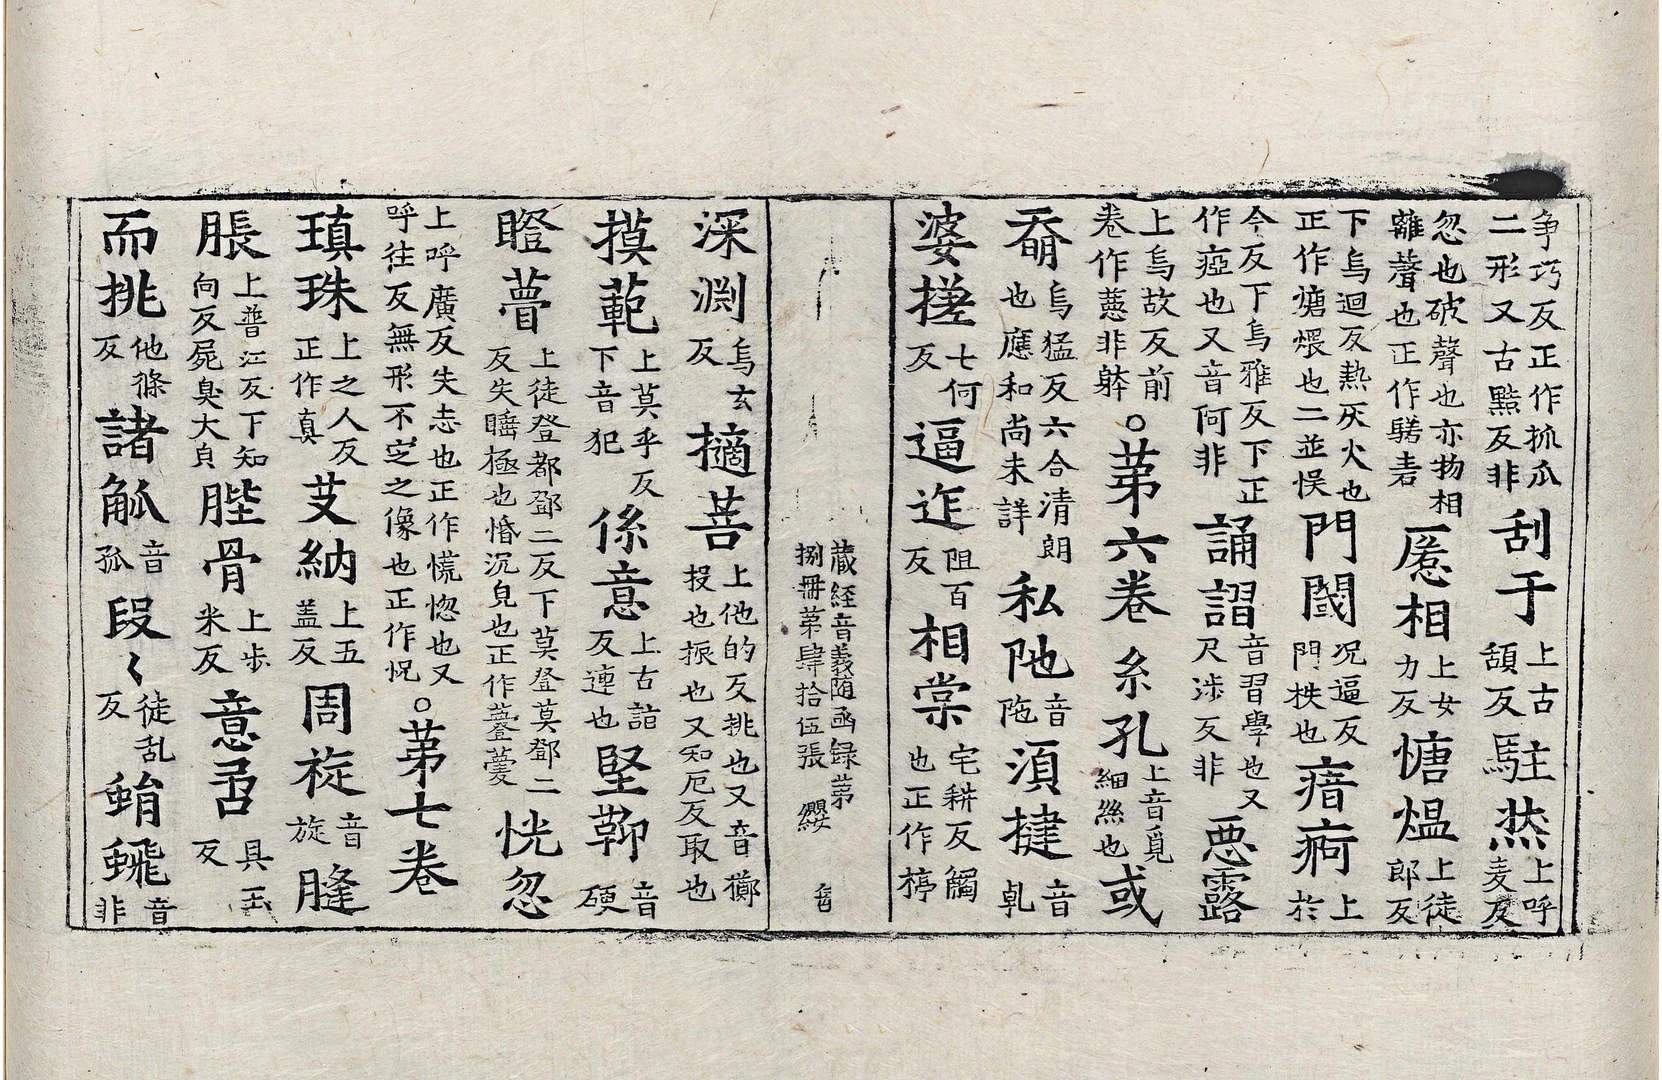 争巧反正作抓爪二形又古黠反非刮于上古頢反駐㷊上呼麦反
忽也破聲也亦物相離聲也正作騞砉慝相上女力反慩煴上徒郎反
下烏迴反熱灰火也正作煻煨也二並悮門閾况逼反門柣也瘖痾上於
今反下烏雅反下正作瘂也又音何非誦謵音習學也又尺涉反非惡露
上烏故反前卷作蕙非躰○苐六卷糸孔上音覓細絲也或
奛烏猛反六合清朗也應和尚未詳私阤音陁湏揵音乹
婆搓七何反逼迮阻百反相棠宅耕反觸也正作樘
藏経音義随函録苐捌冊苐肆拾伍張纓
深渊烏玄反擿菩上他的反挑也又音擲投也振也又知厄反取也
摸範上莫乎反下音犯係意上古詣反連也堅鞕音硬
瞪瞢上徒登都鄧二反下莫登莫鄧二反失睡極也惛沉皃也正作䔲䕯恍忽
上呼廣反失志也正作慌惚也又呼往反無形不㝎之像也正作怳○苐七卷
瑱珠上之人反正作真芟納上五盖反周㳬音旋䏺
脹上普江反下知向反屍臭大皃䏶骨上步米反意𠮷具玉反
而挑他條反諸觚音孤段〻徒乱反蜎蜚音非